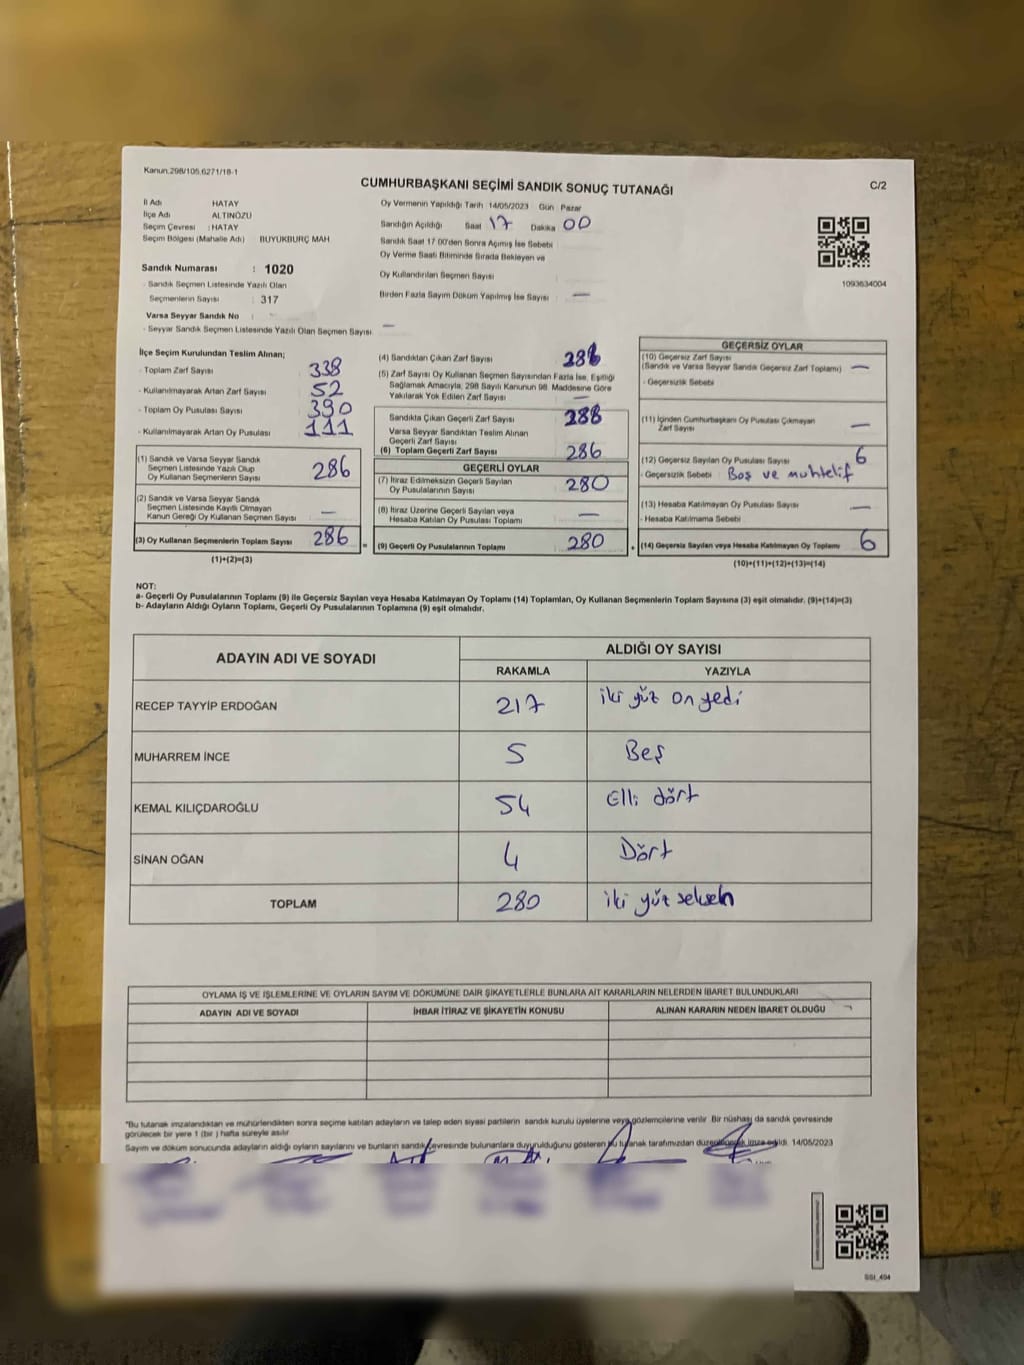 Kanun.298/105.6271/18-1
CUMHURBAŞKANI SEÇİMİ SANDIK SONUÇ TUTANAĞI
C/2
İl Adı HATAY
İlçe Adı ALTINÖZÜ
Seçim Çevresi : HATAY
Seçim Bölgesi (Mahalle Adı) BÜYÜKBURÇ MAH
Sandık Numarası : 1020
- Sandık Seçmen Listesinde Yazılı Olan
Seçmenlerin Sayısı : 317
Varsa Seyyar Sandık No :
- Seyyar Sandık Seçmen Listesinde Yazılı Olan Seçmen Sayısı —
Oy Vermenin Yapıldığı Tarih 14/05/2023 Gün Pazar
Sandığın Açıldığı Saat 17 Dakika 00
Sandık Saat 17 00'den Sonra Açımış İse Sebebi
Oy Verme Saati Bitiminde Sırada Bekleyen ve
Oy Kullandırılan Seçmen Sayısı
Birden Fazla Sayım Döküm Yapılmış İse Sayısı —
1093634004
İlçe Seçim Kurulundan Teslim Alınan;
- Toplam Zarf Sayısı 338
- Kullanılmayarak Artan Zarf Sayısı 52
- Toplam Oy Pusulası Sayısı 390
- Kullanılmayarak Artan Oy Pusulası 111
(1) Sandık ve Varsa Seyyar Sandık
Seçmen Listesinde Yazılı Olup
Oy Kullanan Seçmenlerin Sayısı 286
(2) Sandık ve Varsa Seyyar Sandık
Seçmen Listesinde Kayıtlı Olmayan
Kanun Gereği Oy Kullanan Seçmen Sayısı —
(3) Oy Kullanan Seçmenlerin Toplam Sayısı 286
(1)+(2)=(3)
(4) Sandıktan Çıkan Zarf Sayısı 286
(5) Zarf Sayısı Oy Kullanan Seçmen Sayısından Fazla İse, Eşitliği
Sağlamak Amacıyla, 298 Sayılı Kanunun 98. Maddesine Göre
Yakılarak Yok Edilen Zarf Sayısı —
Sandıkta Çıkan Geçerli Zarf Sayısı 288
Varsa Seyyar Sandıktan Teslim Alınan
Geçerli Zarf Sayısı
(6) Toplam Geçerli Zarf Sayısı 286
GEÇERLİ OYLAR
(7) İtiraz Edilmeksizin Geçerli Sayılan
Oy Pusulalarının Sayısı 280
(8) İtiraz Üzerine Geçerli Sayılan veya
Hesaba Katılan Oy Pusulası Toplamı —
(9) Geçerli Oy Pusulalarının Toplamı 280
GEÇERSİZ OYLAR
(10) Geçersiz Zarf Sayısı
(Sandık ve Varsa Seyyar Sandık Geçersiz Zarf Toplamı) —
- Geçersizlik Sebebi
(11) İçinden Cumhurbaşkanı Oy Pusulası Çıkmayan
Zarf Sayısı —
(12) Geçersiz Sayılan Oy Pusulası Sayısı 6
- Geçersizlik Sebebi Boş ve muhtelif
(13) Hesaba Katılmayan Oy Pusulası Sayısı —
- Hesaba Katılmama Sebebi
(14) Geçersiz Sayılan veya Hesaba Katılmayan Oy Toplamı 6
(10)+(11)+(12)+(13)=(14)
NOT:
a- Geçerli Oy Pusulalarının Toplamı (9) ile Geçersiz Sayılan veya Hesaba Katılmayan Oy Toplamı (14) Toplamları, Oy Kullanan Seçmenlerin Toplam Sayısına (3) eşit olmalıdır. (9)+(14)=(3)
b- Adayların Aldığı Oyların Toplamı, Geçerli Oy Pusulalarının Toplamına (9) eşit olmalıdır.
ADAYIN ADI VE SOYADI
ALDIĞI OY SAYISI
RAKAMLA YAZIYLA
RECEP TAYYİP ERDOĞAN 217 iki yüz on yedi
MUHARREM İNCE 5 Beş
KEMAL KILIÇDAROĞLU 54 Elli dört
SİNAN OĞAN 4 Dört
TOPLAM 280 iki yüz seksen
OYLAMA İŞ VE İŞLEMLERİNE VE OYLARIN SAYIM VE DÖKÜMÜNE DAİR ŞİKAYETLERLE BUNLARA AİT KARARLARIN NELERDEN İBARET BULUNDUKLARI
ADAYIN ADI VE SOYADI İHBAR İTİRAZ VE ŞİKAYETİN KONUSU ALINAN KARARIN NEDEN İBARET OLDUĞU
"Bu tutanak imzalandıktan ve mühürlendikten sonra seçime katılan adayların ve talep eden siyasi partilerin sandık kurulu üyelerine veya gözlemcilerine verilir Bir nüshası da sandık çevresinde
görülecek bir yere 1 (bir) hafta süreyle asılır
Sayım ve döküm sonucunda adayların aldığı oyların sayılarını ve bunların sandık çevresinde bulunanlara duyurulduğunu gösteren bu tutanak tarafımızdan düzenlenerek imza edildi. 14/05/2023
SSI_404